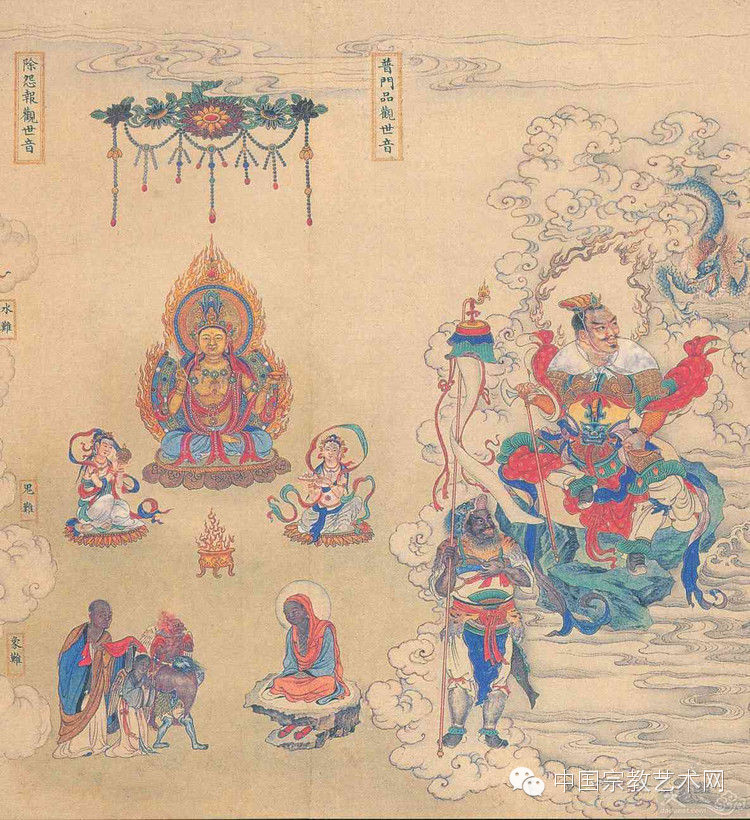 除怨報觀世音
普門品觀世音
水難
鬼難
象難
中国宗教艺术网